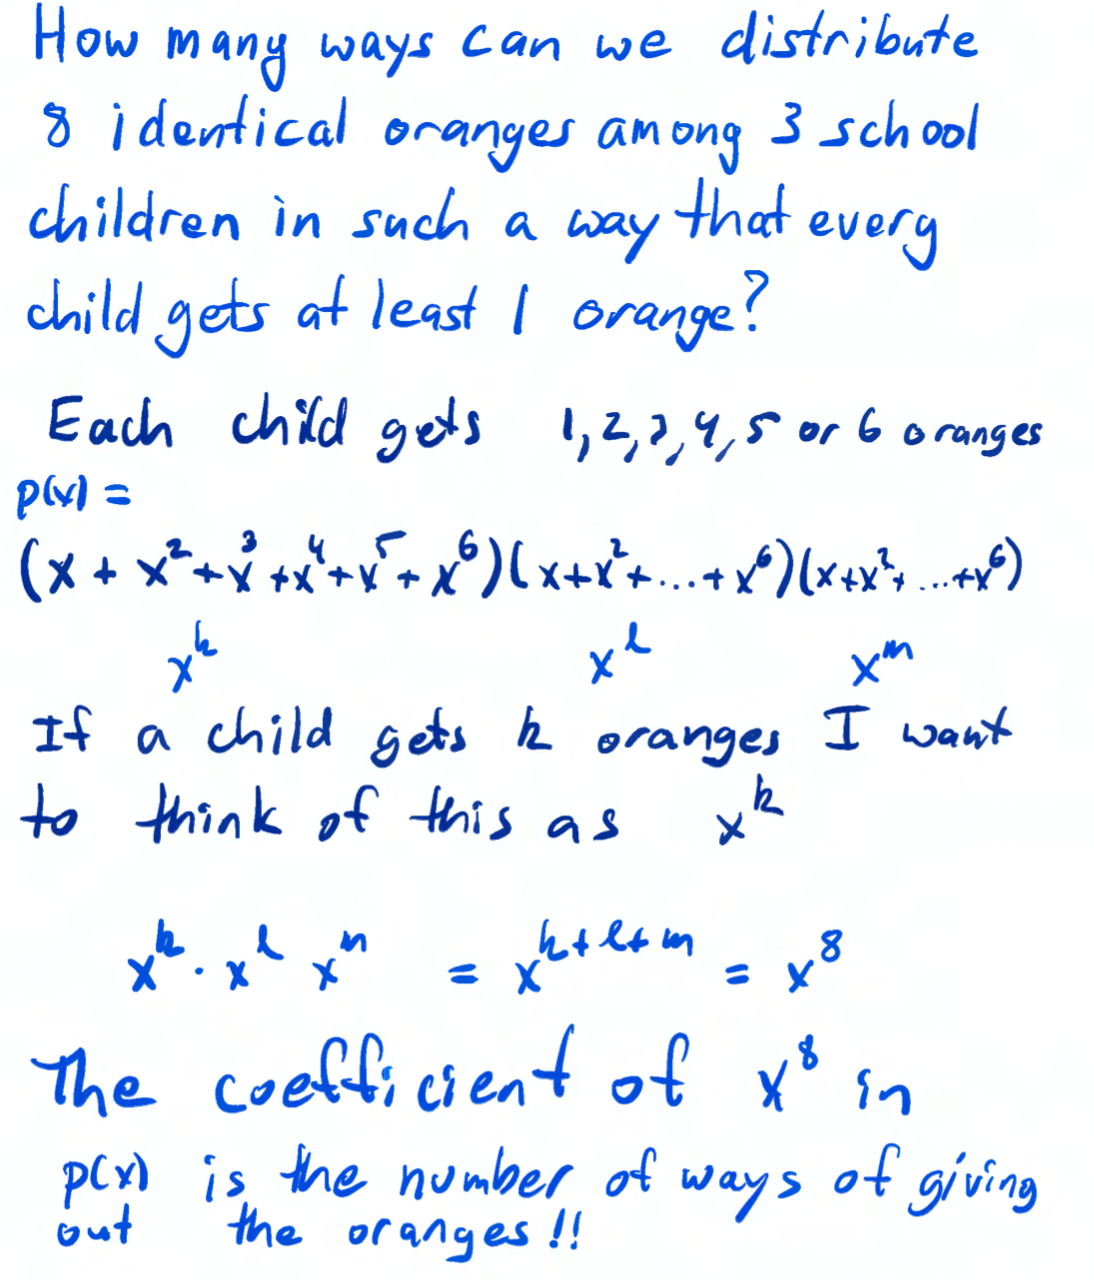 How many ways can we distribute
8 identical oranges among 3 school
children in such a way that every
child gets at least 1 orange?
Each child gets 1, 2, 3, 4, 5 or 6 oranges
p(x) =
(x + x² + x³ + x⁴ + x⁵ + x⁶)(x + x² + ... + x⁶)(x + x² + ... + x⁶)
xᵏ xˡ xᵐ
If a child gets k oranges I want
to think of this as xᵏ
xᵏ · xˡ xᵐ = xᵏ⁺ˡ⁺ᵐ = x⁸
The coefficient of x⁸ in
p(x) is the number of ways of giving
out the oranges!!